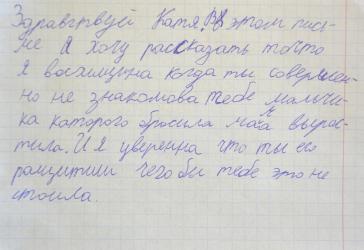 Здравгтвуй Катя! В этом пись-
ме я хочу рассказать то что
я восхищина когда ты совершен-
но не знакомова тебе мальчи-
ка которого бросила мама вырос-
тила. И я уверенна что ты его
ращитили чего би тебе это не
стоила.